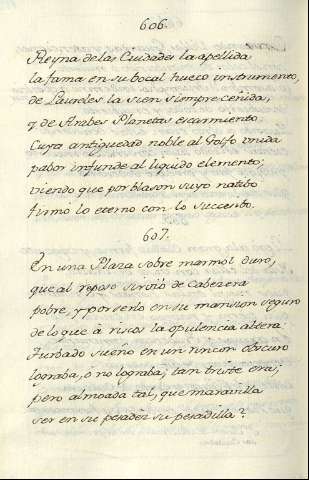 606.
Reyna de las Ciudades la apellida
la fama en su bocal hueco instrumento,
de Laureles la sien siempre ceñida,
y de Arabes Planetas escarmiento.
Cuya antiguedad noble al Golfo unida
pabor infunde al liquido elemento;
viendo que por blason suyo natibo
firmó lo eterno con lo succesibo.
607.
En una Plaza sobre marmol duro,
que al reposo sirvió de cabezera
pobre, y por serlo en su mansion seguro
de lo que à ricos la opulencia altera:
Turbado sueño en un rincon obscuro
lograba, o no lograba; tan triste era;
pero almoada tal, que maravilla
ser en su pesadez su pesadilla?